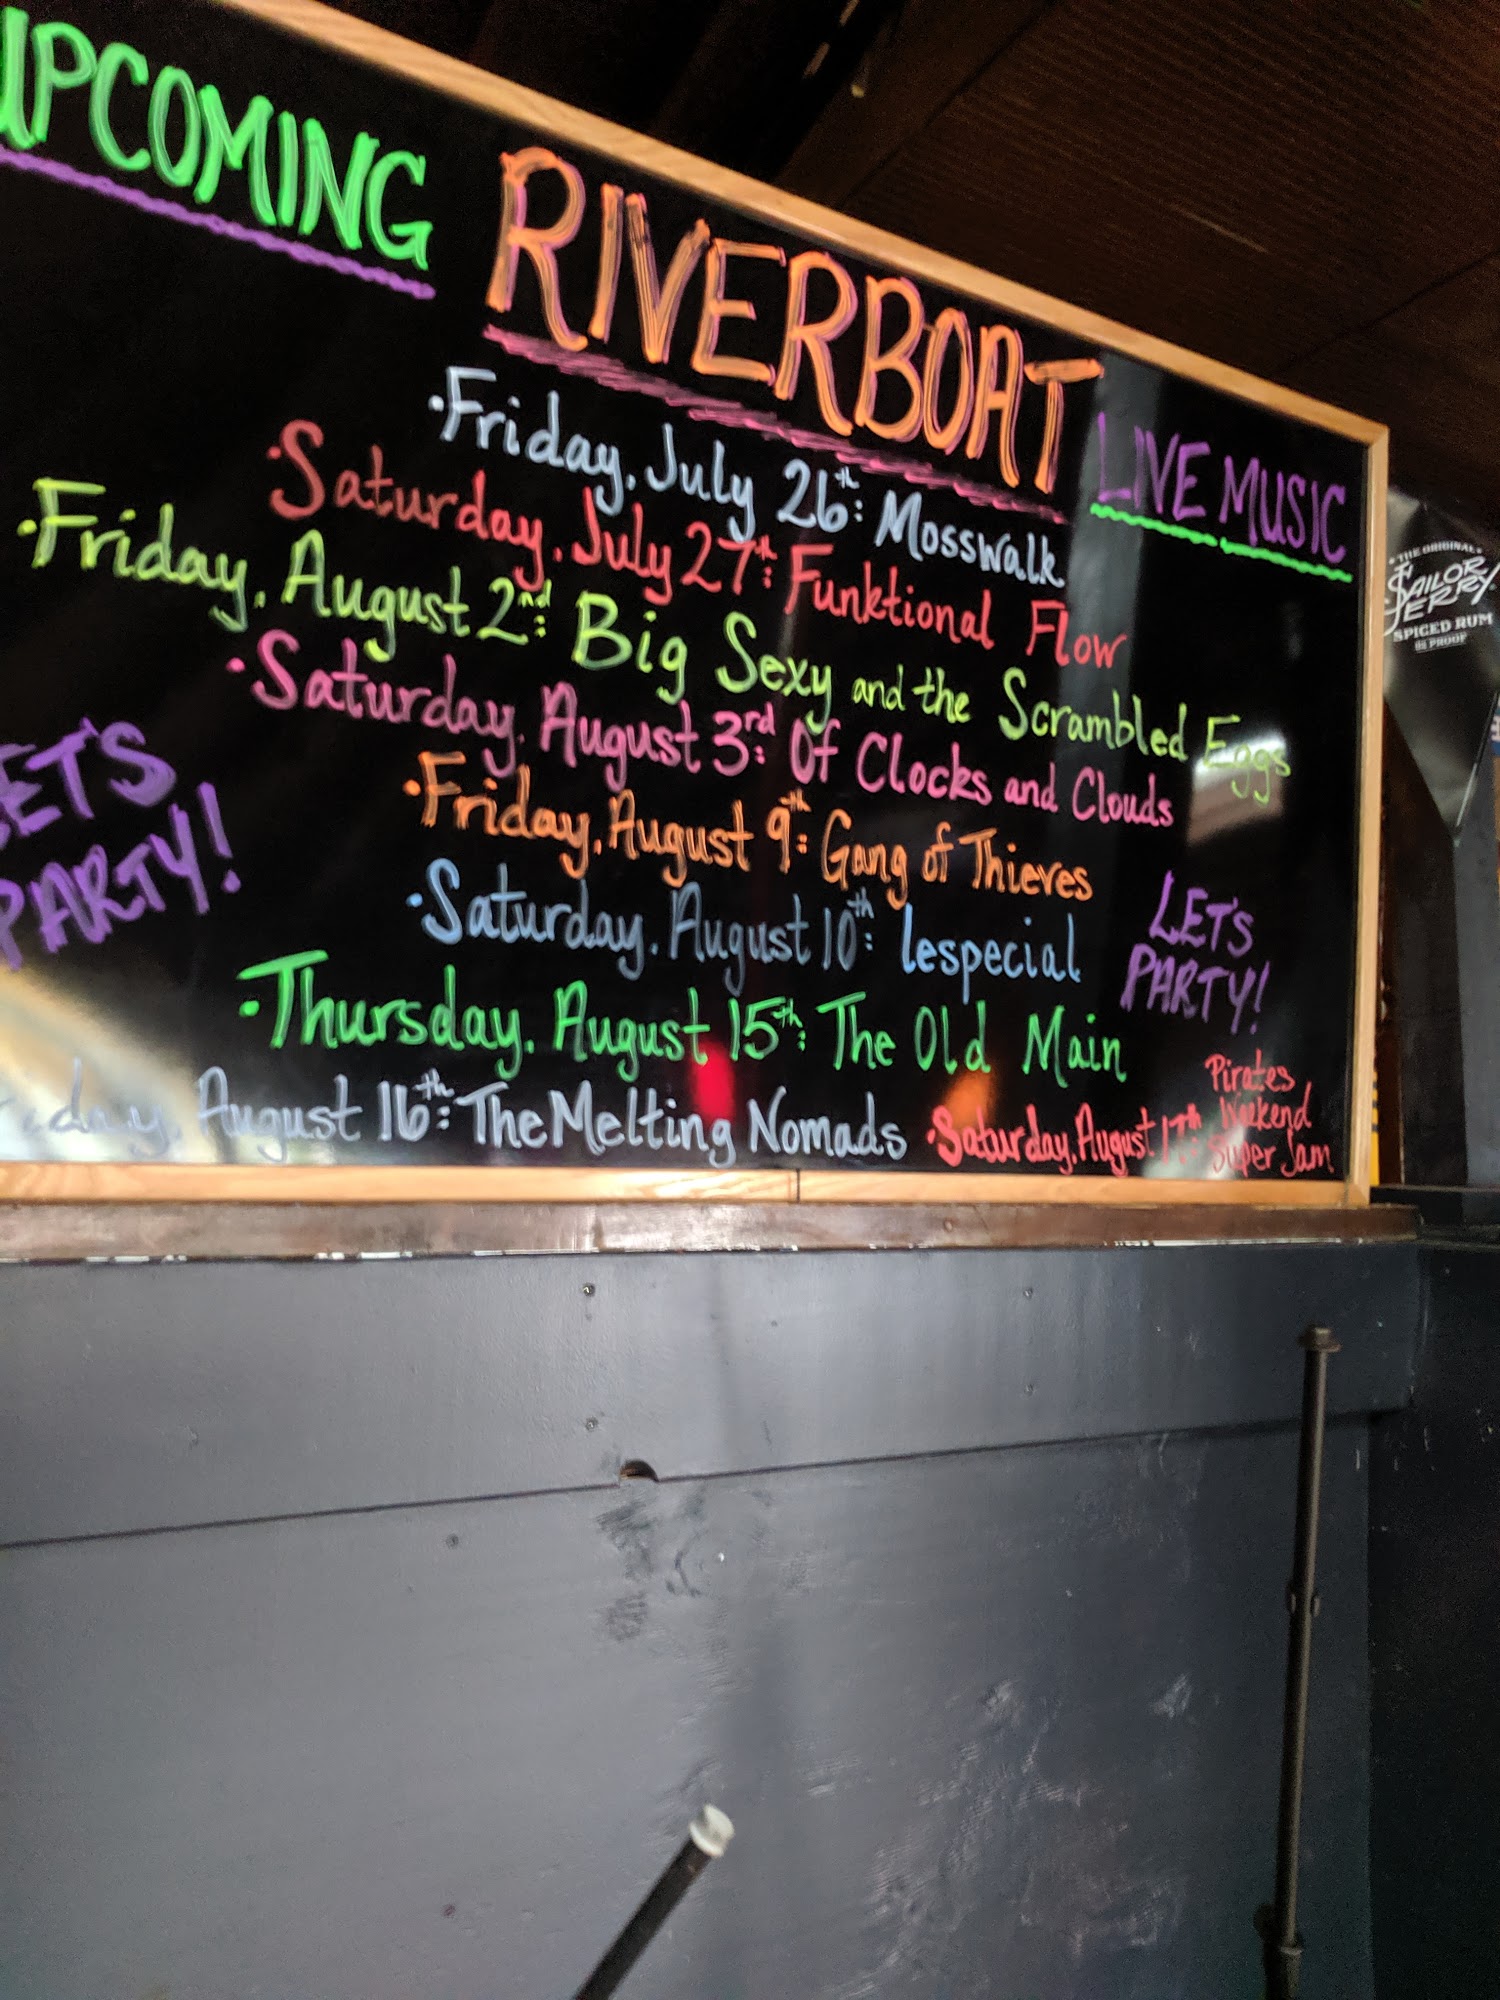 UPCOMING RIVERBOAT LIVE MUSIC
• Friday, July 26th: Mosswalk
• Saturday, July 27th: Funktional Flow
• Friday, August 2nd: Big Sexy and the Scrambled Eggs
• Saturday, August 3rd: Of Clocks and Clouds
• Friday, August 9th: Gang of Thieves
• Saturday, August 10th: lespecial
• Thursday, August 15th: The Old Main
August 16th: The Melting Nomads
• Saturday, August 17th: Pirates Weekend Super Jam
LET'S
PARTY!
LET'S
PARTY!
• THE ORIGINAL •
SAILOR
JERRY
SPICED RUM